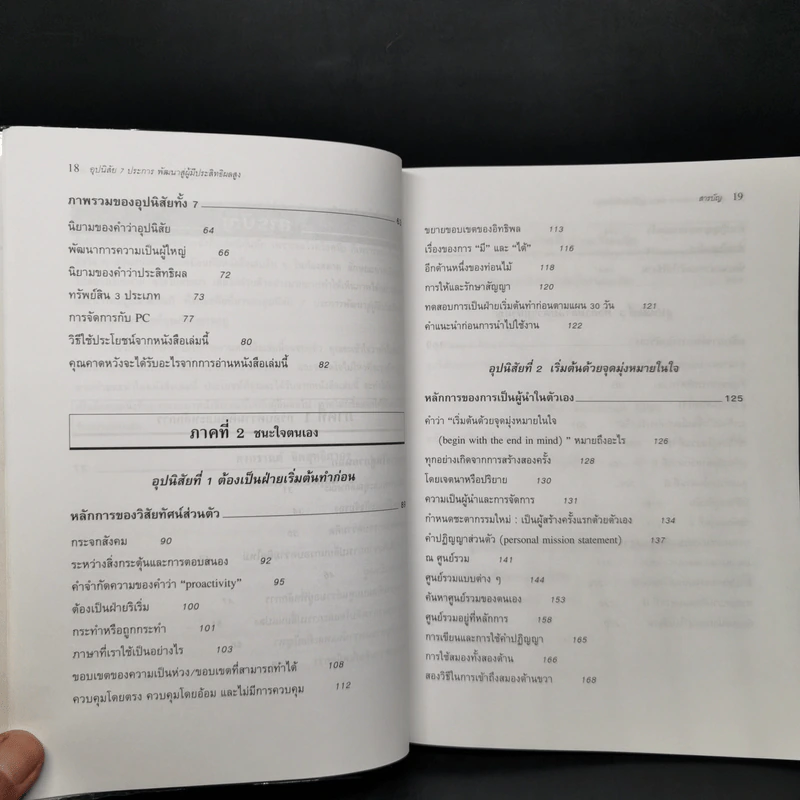 18 อุปนิสัย 7 ประการ พัฒนาสู่ผู้มีประสิทธิผลสูง
ภาพรวมของอุปนิสัยทั้ง 7
นิยามของคำว่าอุปนิสัย 64
พัฒนาการความเป็นผู้ใหญ่ 66
นิยามของคำว่าประสิทธิผล 72
ทรัพย์สิน 3 ประเภท 73
การจัดการกับ PC 77
วิธีใช้ประโยชน์จากหนังสือเล่มนี้ 80
คุณคาดหวังจะได้รับอะไรจากการอ่านหนังสือเล่มนี้ 82
ภาคที่ 2 ชนะใจตนเอง
อุปนิสัยที่ 1 ต้องเป็นฝ่ายเริ่มต้นทำก่อน
หลักการของวิสัยทัศน์ส่วนตัว 89
กระจกสังคม 90
ระหว่างสิ่งกระตุ้นและการตอบสนอง 92
คำจำกัดความของคำว่า “proactivity” 95
ต้องเป็นฝ่ายริเริ่ม 100
กระทำหรือถูกกระทำ 101
ภาษาที่เราใช้เป็นอย่างไร 103
ขอบเขตของความเป็นห่วง/ขอบเขตที่สามารถทำได้ 108
ควบคุมโดยตรง ควบคุมโดยอ้อม และไม่มีการควบคุม 112
สารบัญ 19
ขยายขอบเขตของอิทธิพล 113
เรื่องของการ “มี” และ “ได้” 116
อีกด้านหนึ่งของท่อนไม้ 118
การให้และรักษาสัญญา 120
ทดสอบการเป็นฝ่ายเริ่มต้นทำก่อนตามแผน 30 วัน 121
คำแนะนำก่อนการนำไปใช้งาน 122
อุปนิสัยที่ 2 เริ่มต้นด้วยจุดมุ่งหมายในใจ
หลักการของการเป็นผู้นำในตัวเอง 125
คำว่า “เริ่มต้นด้วยจุดมุ่งหมายในใจ
(begin with the end in mind) ” หมายถึงอะไร 126
ทุกอย่างเกิดจากการสร้างสองครั้ง 128
โดยเจตนาหรือปริยาย 130
ความเป็นผู้นำและการจัดการ 131
กำหนดชะตากรรมใหม่ : เป็นผู้สร้างครั้งแรกด้วยตัวเอง 134
คำปฏิญญาส่วนตัว (personal mission statement) 137
ณ ศูนย์รวม 141
ศูนย์รวมแบบต่าง ๆ 144
ค้นหาศูนย์รวมของตนเอง 153
ศูนย์รวมอยู่ที่หลักการ 158
การเขียนและการใช้คำปฏิญญา 165
การใช้สมองทั้งสองด้าน 166
สองวิธีในการเข้าถึงสมองด้านขวา 168